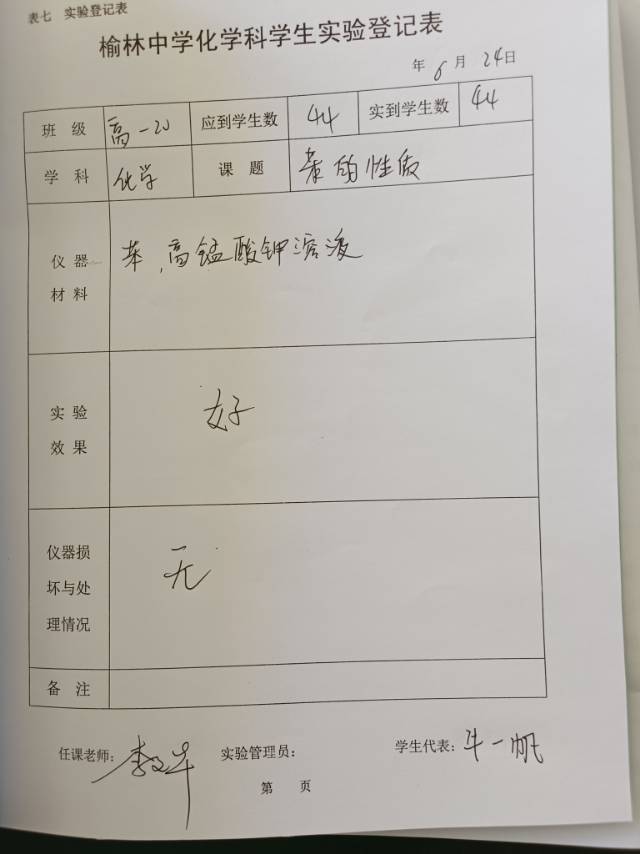 表七 实验登记表
榆林中学化学科学生实验登记表
年 6 月 24日
班 级 高一20 应到学生数 44 实到学生数 44
学 科 化学 课 题 苯的性质
仪 器
材 料
苯,高锰酸钾溶液
实 验
效 果
好
仪器损
坏与处
理情况
无
备 注
任课老师: 李文 实验管理员: 学生代表: 牛一帆
第 页